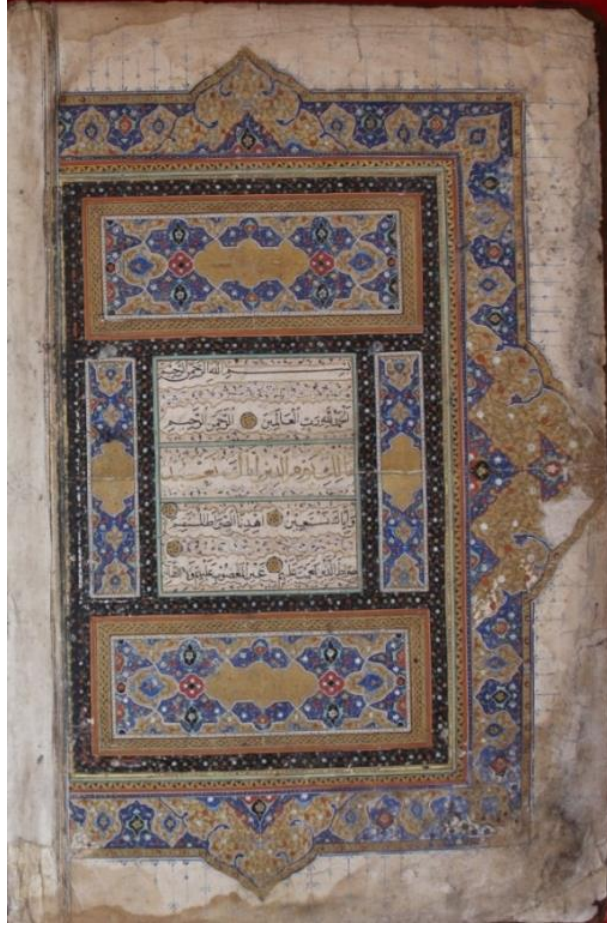 بسم الله الرحمن الرحيم
الحمد لله رب العالمين الرحمن الرحيم
مالك يوم الدين اياك نعبد
واياك نستعين اهدنا الصراط المستقيم
صراط الذين انعمت عليهم غير المغضوب عليهم ولا الضالين